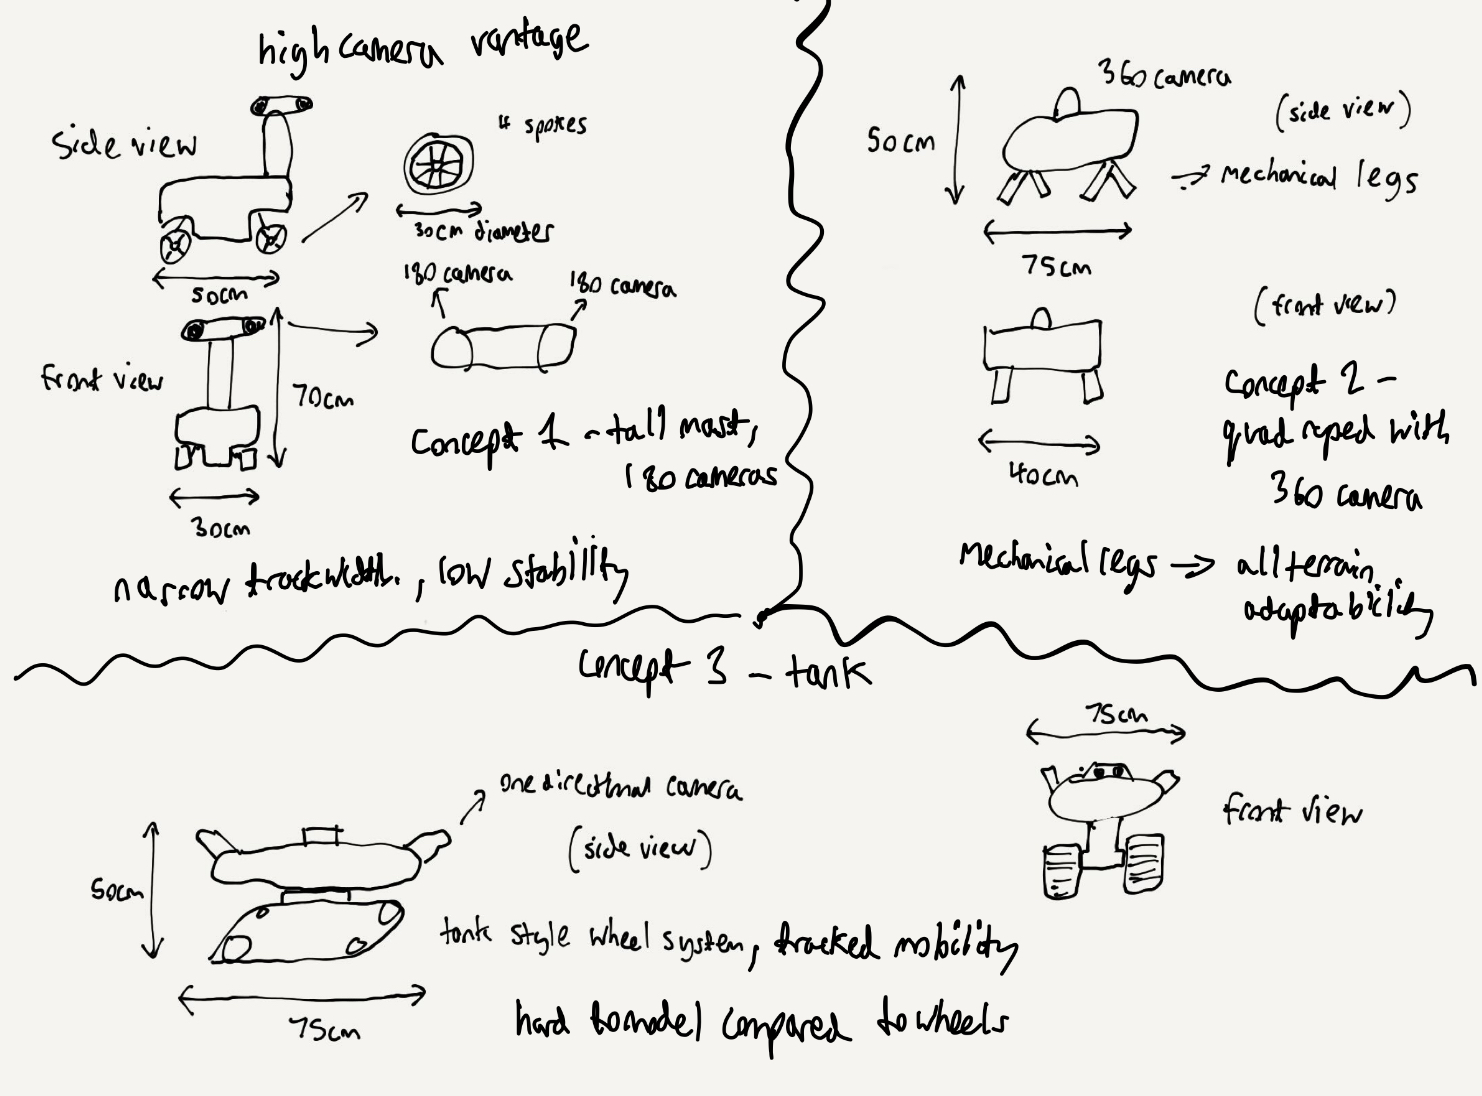 high camera vantage
side view
4 spokes
30cm diameter
50cm
180 camera
180 camera
front view
70cm
Concept 1 - tall mast,
180 cameras
30cm
narrow trackwidth, low stability
360 camera
(side view)
50cm
mechanical legs
75cm
(front view)
40cm
Concept 2 -
quad reped with
360 camera
Mechanical legs → all terrain
adaptability
Concept 3 - tank
75cm
front view
one directional camera
(side view)
50cm
tank style wheel system, tracked mobility
75cm
hard to model compared to wheels